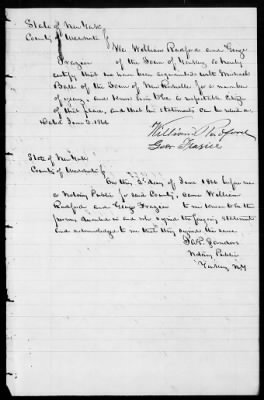 State of New York
County of
We William Radford and George
Frazier of the Town of Yonkers do hereby
certify that we have been acquainted with Michael
Ball of the Town of New Rochelle for a number
of years, and know him to be a respectable citizen
of that place, and that his statements can be relied on
Dated June 2.
William Radford
Geor Frasier
State of New York
County of
On this 2d day of June before me
a Notary Public for said County, came William
Radford and George Frazier to me known to be the
persons described in and who signed the foregoing statement
and acknowledged to me that they signed the same
Notary Public
Yonkers N.Y